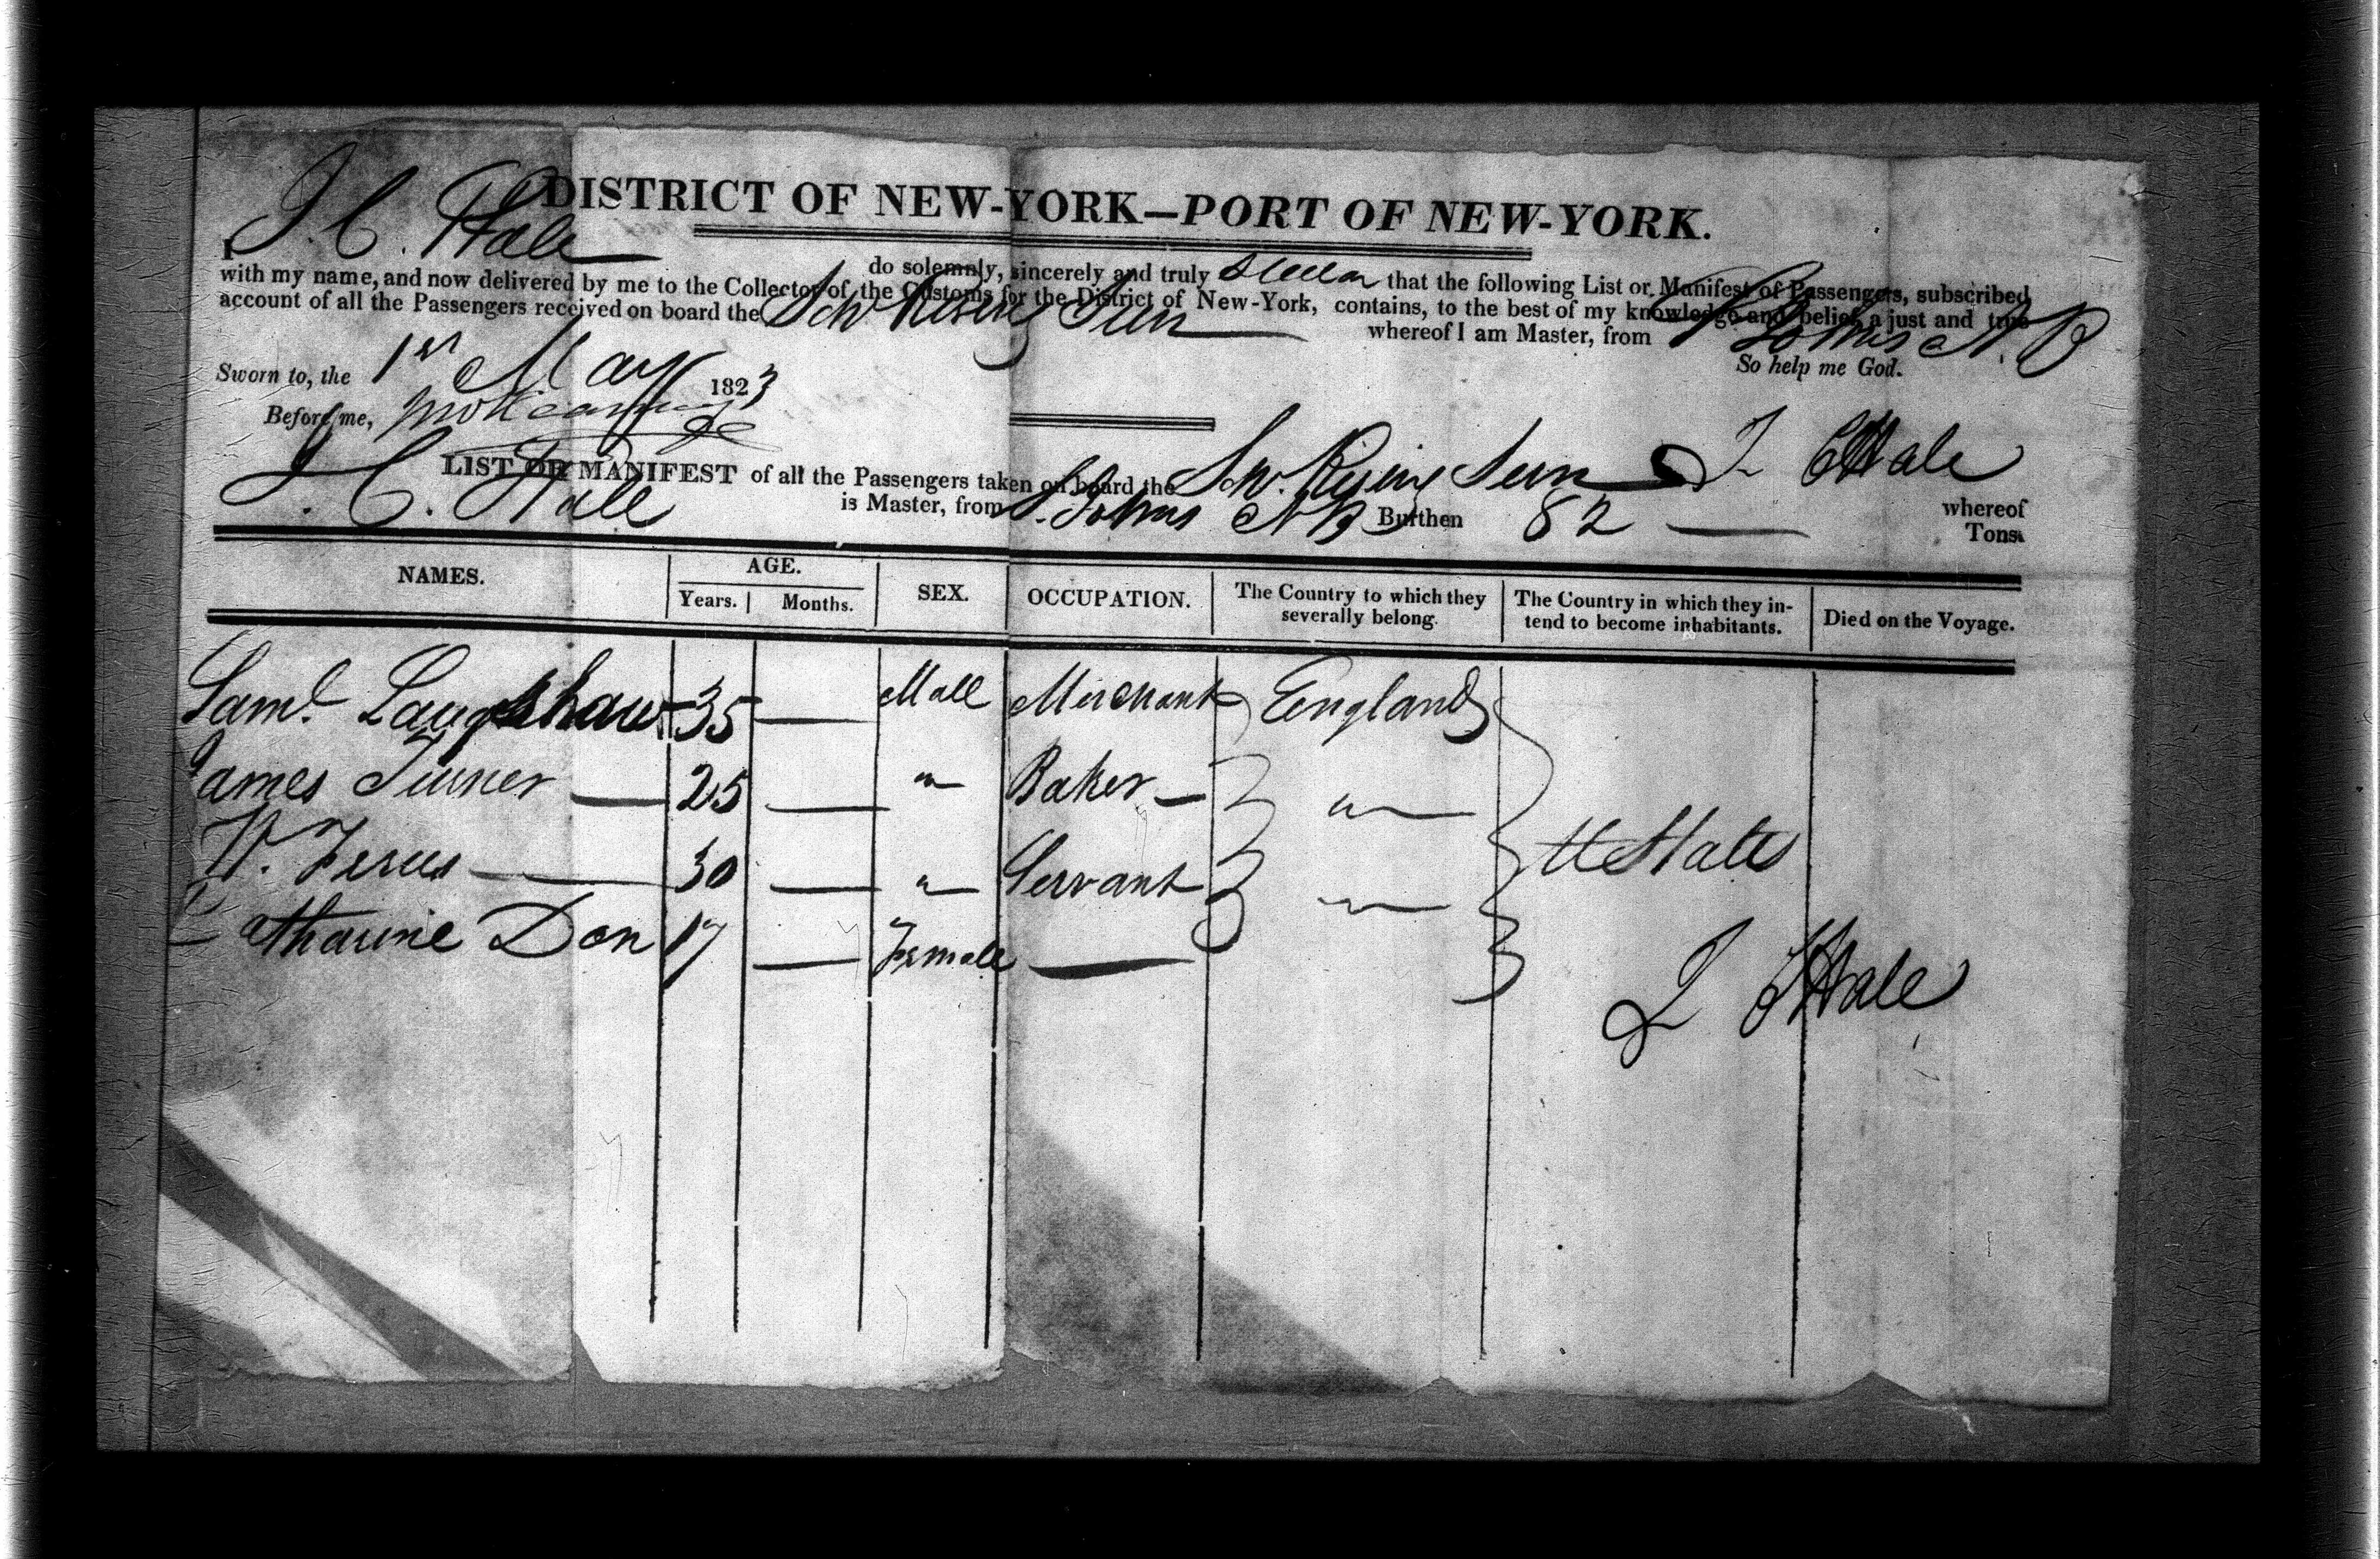 DISTRICT OF NEW-YORK—PORT OF NEW-YORK.
I J. C. Hale do solemnly, sincerely and truly swear that the following List or Manifest of Passengers, subscribed
with my name, and now delivered by me to the Collector of the Customs for the District of New-York, contains, to the best of my knowledge and belief, a just and true
account of all the Passengers received on board the Schr Rising Sun whereof I am Master, from St Johns N B
Sworn to, the 1st May 1823 So help me God.
Before me,
J C Hale
LIST OR MANIFEST of all the Passengers taken on board the Schr. Rising Sun whereof
J. C. Hale is Master, from St. Johns N B Burthen 82 — Tons.
NAMES. AGE. Years. Months. SEX. OCCUPATION. The Country to which they severally belong. The Country in which they intend to become inhabitants. Died on the Voyage.
Saml. Laugshaw 35 — Male Merchant England
James Turner — 25 — " Baker — "
W. — 30 — " Servant "
Catharine Don 17 — Female —
U States
J C Hale